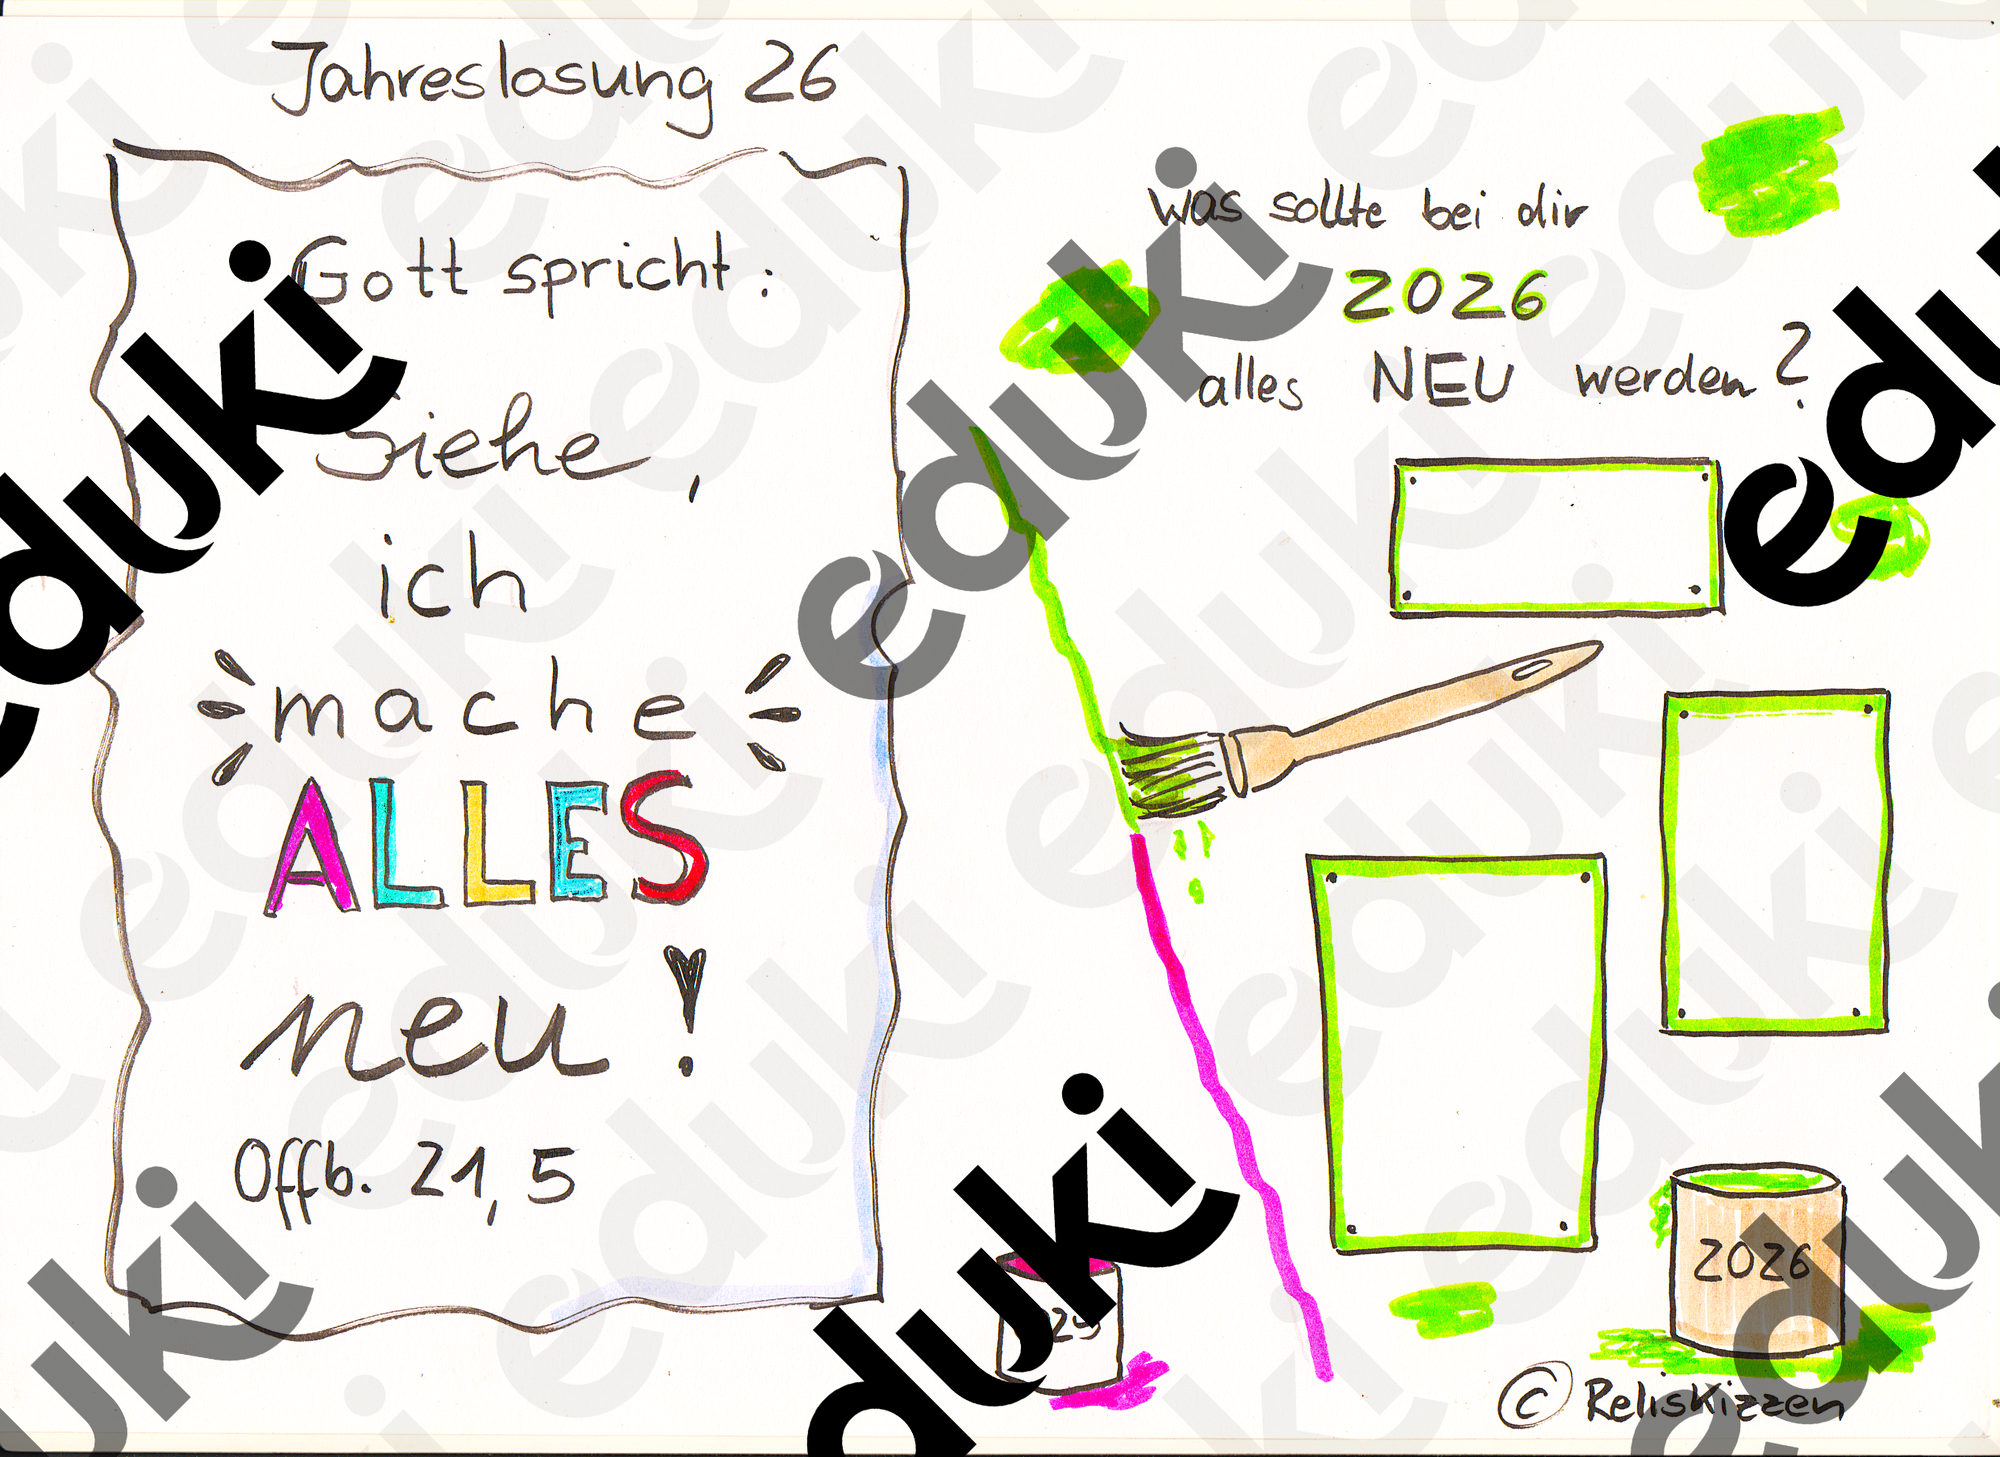 Jahreslosung 26
Gott spricht:
Siehe,
ich
mache
ALLES
neu!
Offb. 21,5
Was sollte bei dir
2026
alles NEU werden?
2026
© ReliSkizzen
eduki
eduki
eduki
eduki
eduki
eduki